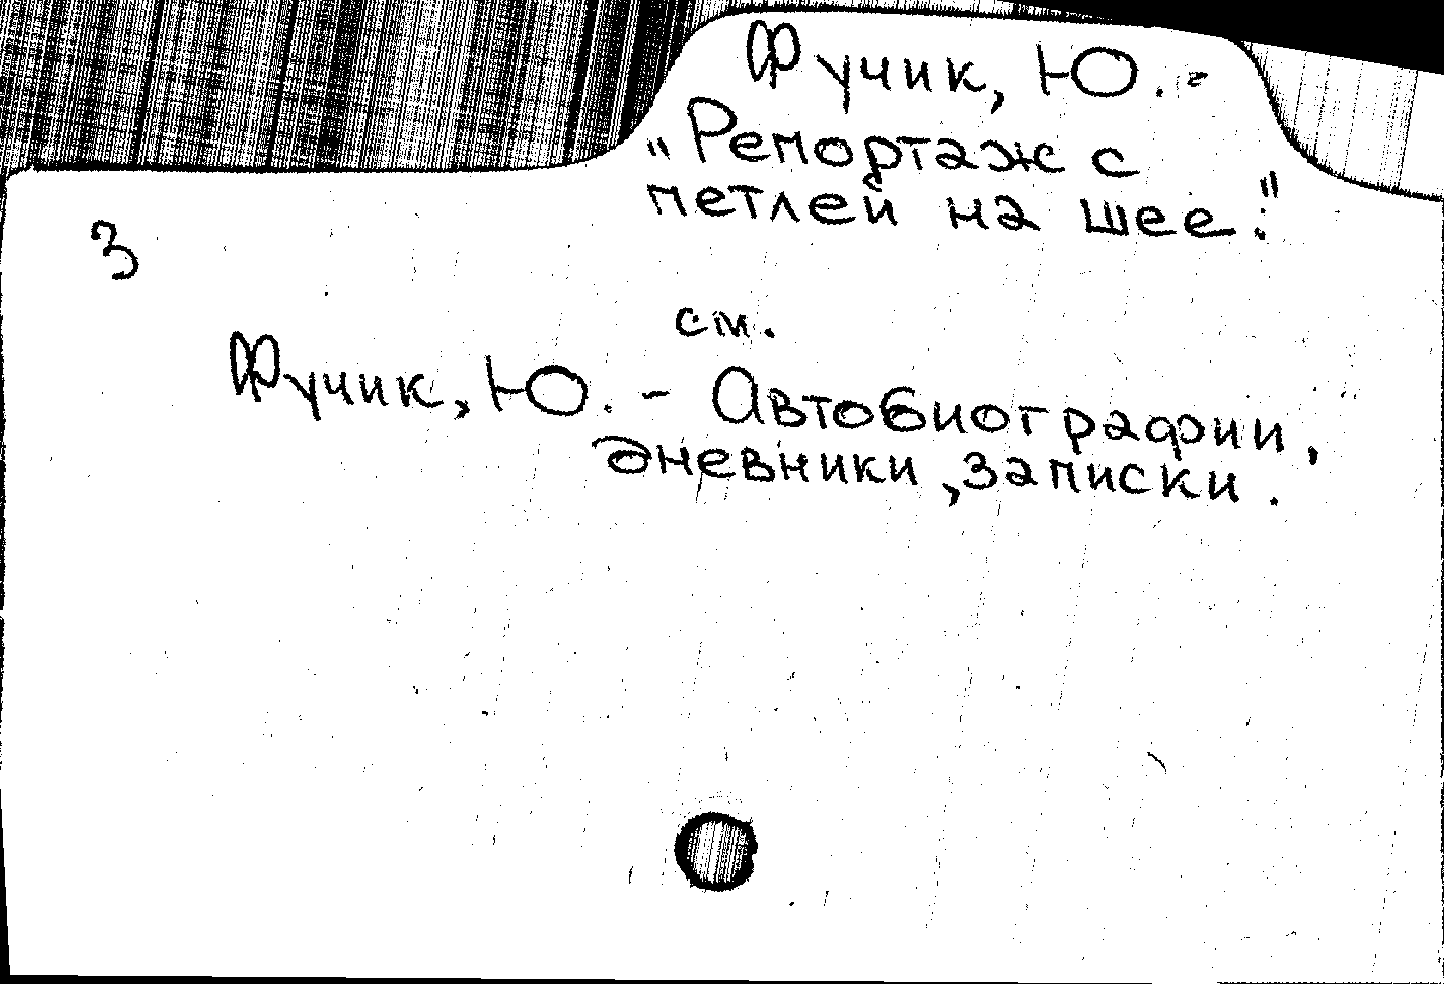 Фучик, Ю. -
„Репортаж с
петлей на шее."
3
см.
Фучик, Ю. - Автобиографии,
дневники, записки.